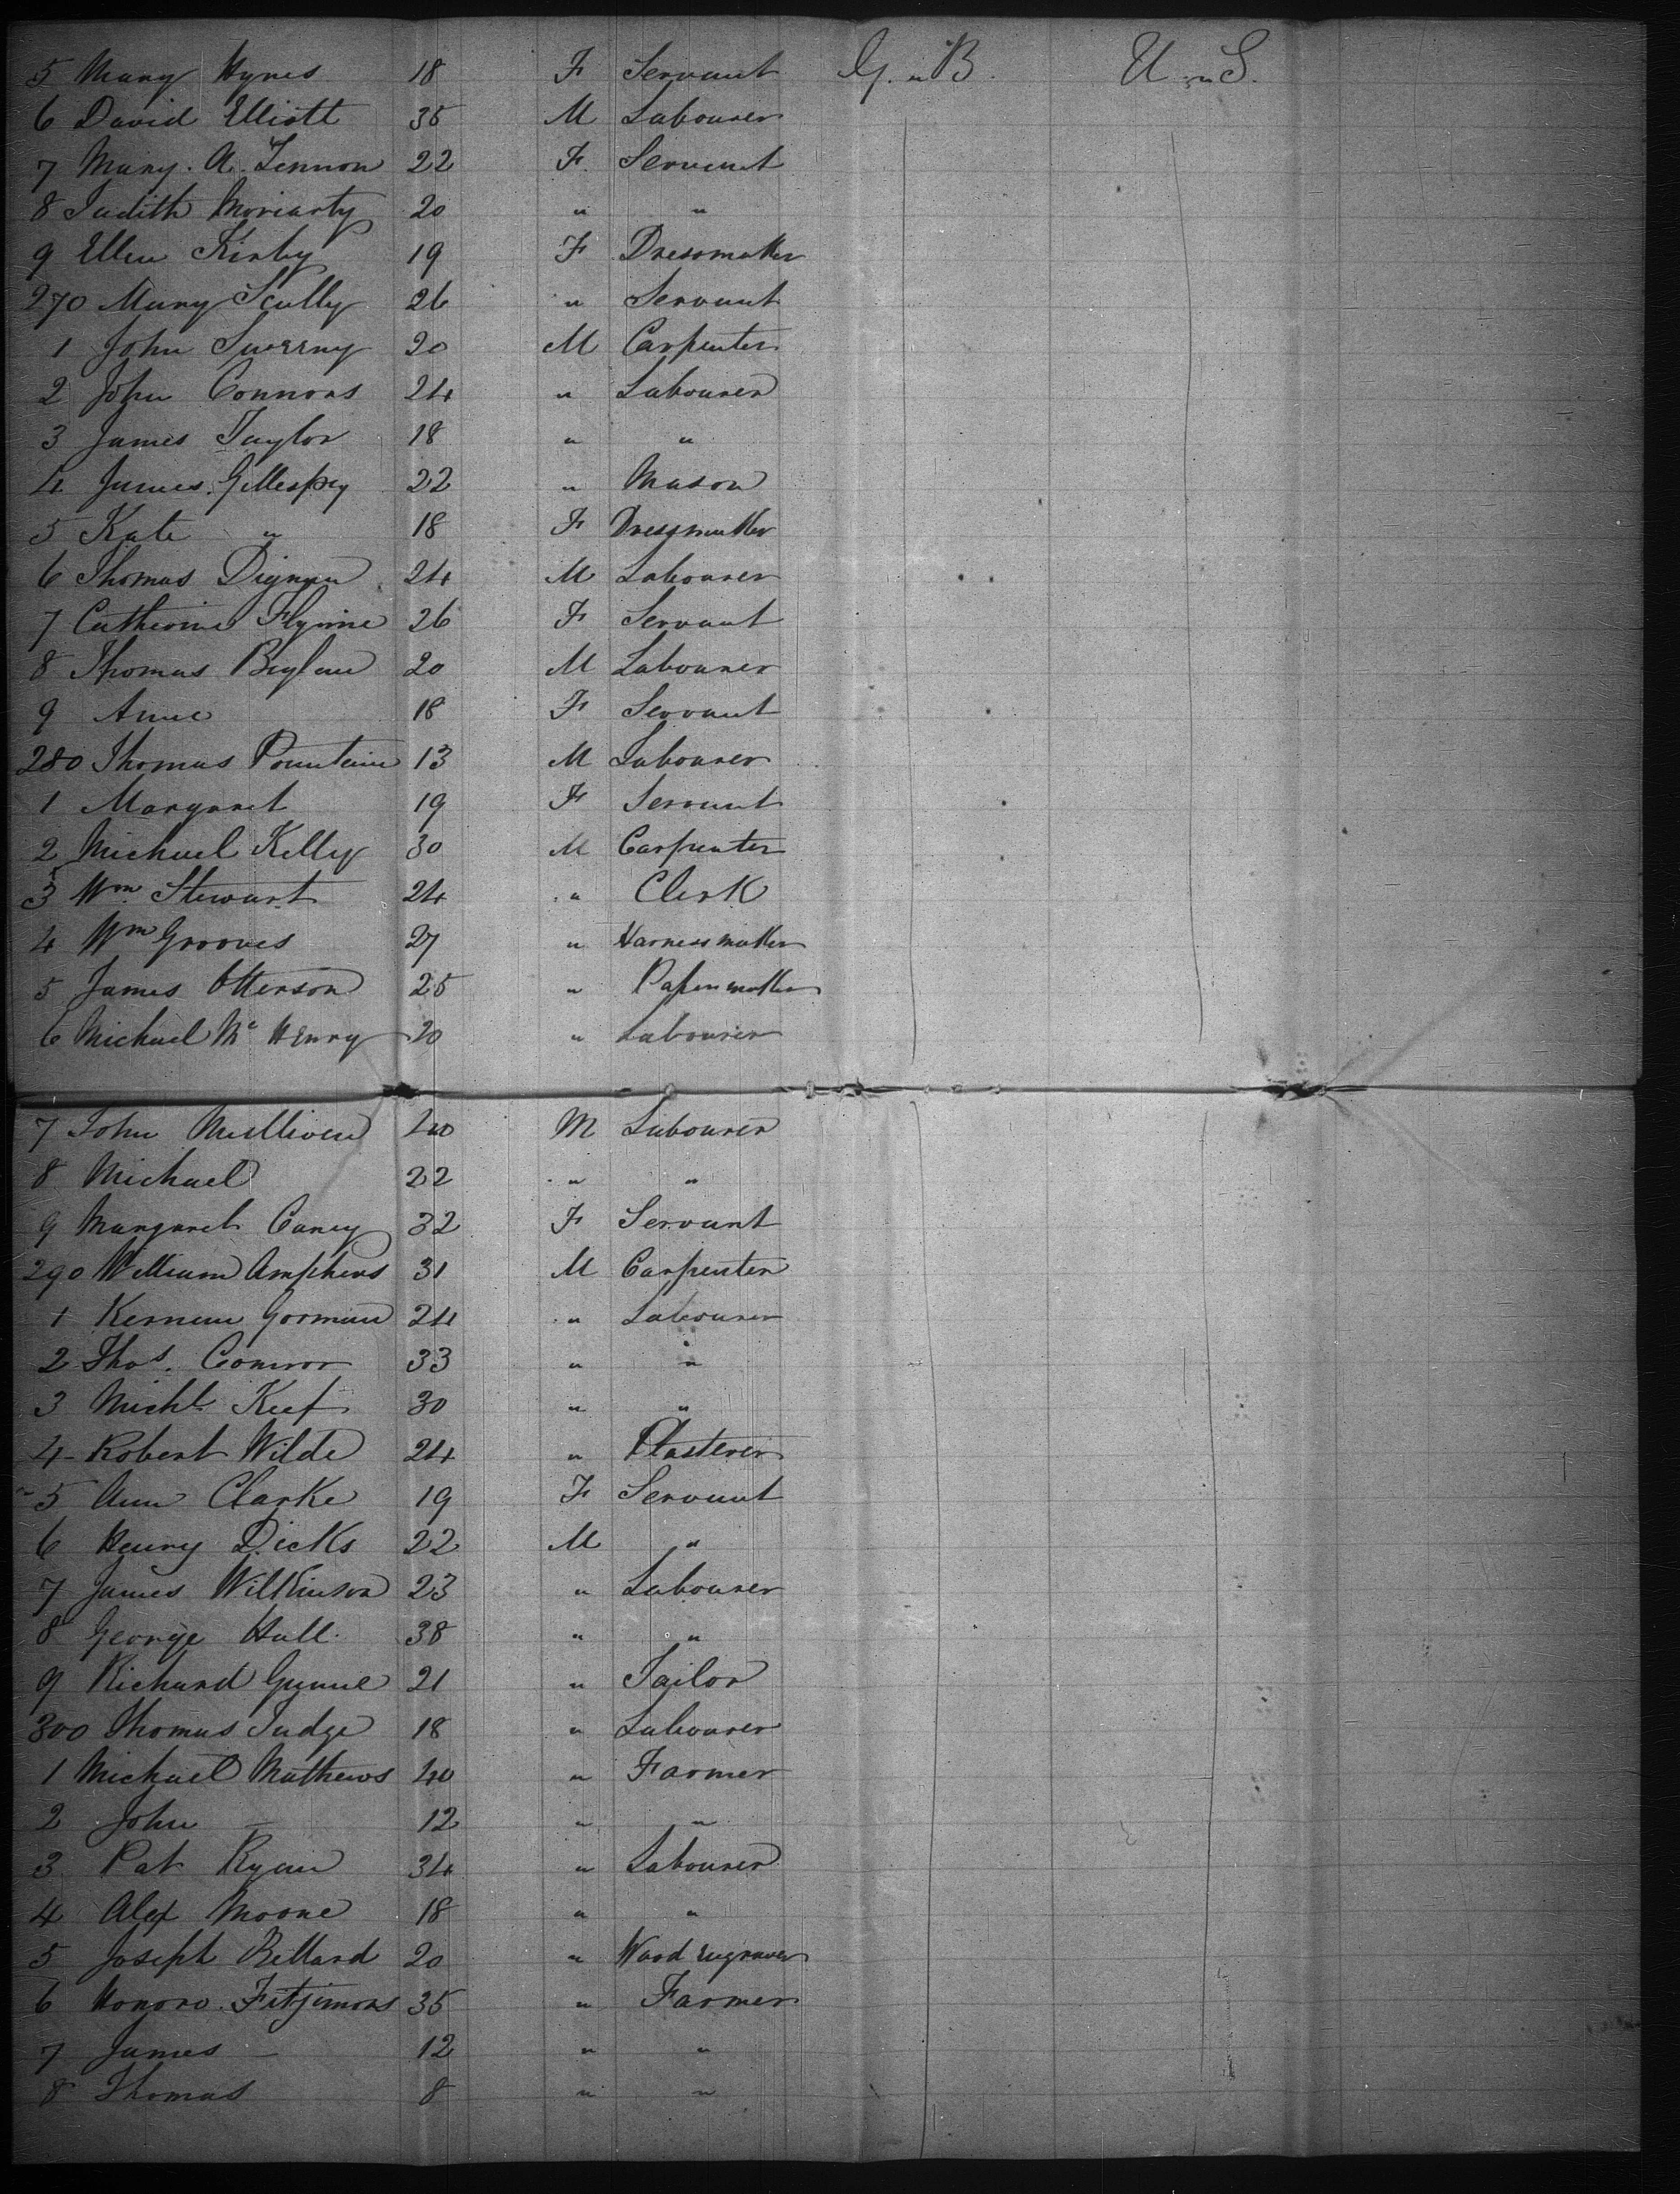 5 Mary Hynes 18 F Servant G. " B. U " S.
6 David Elliott 35 M Labourer
7 Mary. A. Lennon 22 F. Servant
8 Judith Moriarty 20 " "
9 Ellen Kirby 19 F Dressmaker
270 Mary Scully 26 " Servant
1 John Sweeny 20 M Carpenter
2 John Connors 24 " Labourer
3 James Taylor 18 " "
4 James Gillespey 22 " Mason
5 Kate " 18 F Dressmaker
6 Thomas Dignan 24 M Labourer
7 Catherine Flynne 26 F Servant
8 Thomas Boylan 20 M Labourer
9 Anne 18 F Servant
280 Thomas Pountain 13 M Labourer
1 Margaret 19 F Servant
2 Michael Kelly 30 M Carpenter
3 Wm. Stewart 24 " Clerk
4 Wm Grooves 27 " Harness maker
5 James Otterson 25 " Paper maker
6 Michael Mc Henry 20 " Labourer
7 John 40 M Labourer
8 Michael 22 " "
9 Margaret Carey 32 F Servant
290 William Amphews 31 M Carpenter
1 Gorman 24 " Labourer
2 Thos. Connor 33 " "
3 Michl. Keef 30 " "
4 Robert Wilde 24 " Plasterer
5 Ann Clarke 19 F Servant
6 Henry Dicks 22 M "
7 James Wilkinson 23 " Labourer
8 George Hall 38 " "
9 Richard Gunne 21 " Tailor
300 Thomas Judge 18 " Labourer
1 Michael Mathews 40 " Farmer
2 John — 12 " "
3 Pat Ryan 34 " Labourer
4 Alex Moore 18 " "
5 Joseph 20 " Wood Engraver
6 Honoro. Fitzjimons 35 " Farmer
7 James — 12 " "
8 Thomas 8 " "